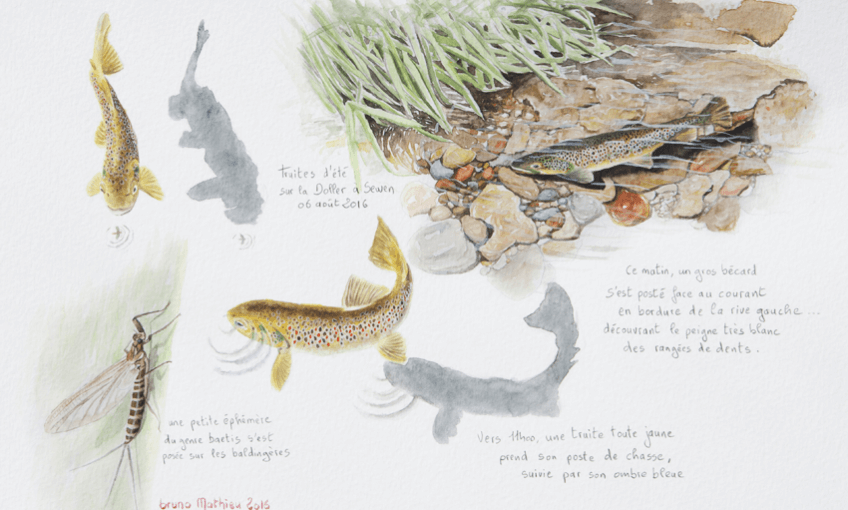 Truites d'été
sur la Doller à Sewen
06 août 2016
Ce matin, un gros bécard
s'est posté face au courant
en bordure de la rive gauche...
découvrant le peigne très blanc
des rangées de dents.
une petite éphémère
du genre baetis s'est
posée sur les baldingères
Vers 11h00, une truite toute jaune
prend son poste de chasse,
suivie par son ombre bleue
bruno Mathieu 2016